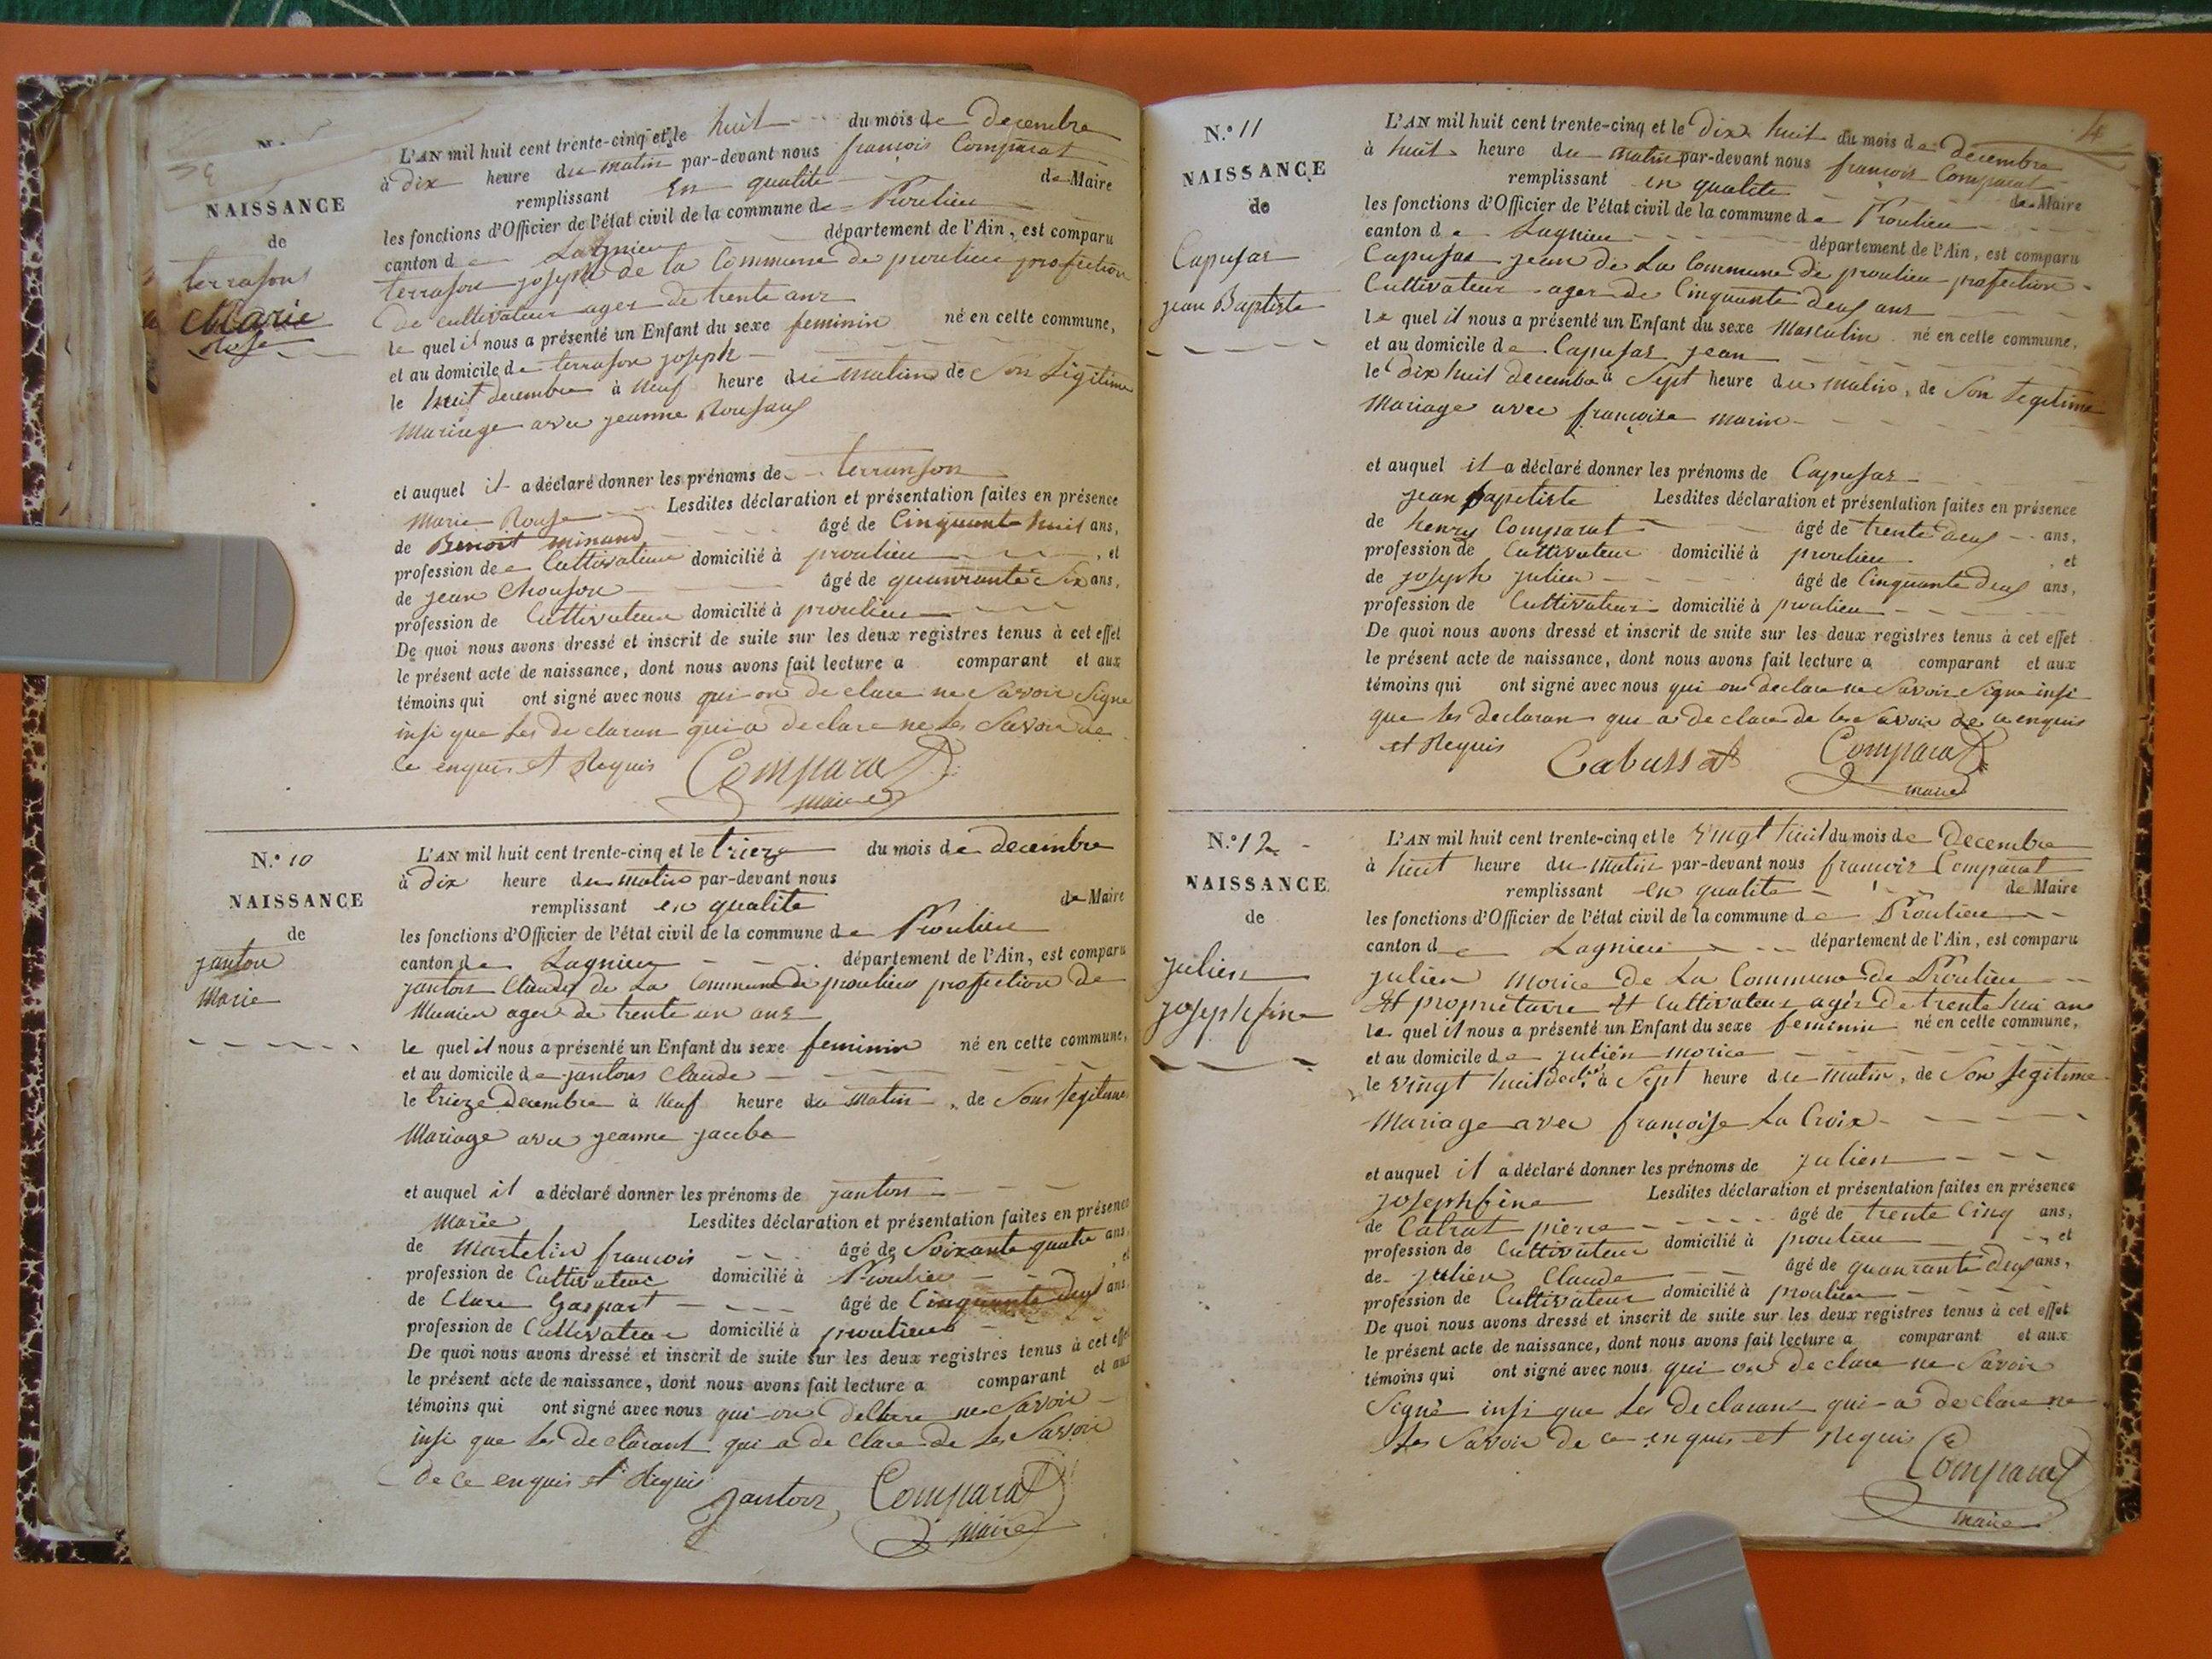 N.º
NAISSANCE
de
terrasons
Marie
Rose
L'AN mil huit cent trente-cinq et le huit du mois de decembre
à dix heure du matin par-devant nous françois Comparat
remplissant en qualite de Maire
les fonctions d'Officier de l'état civil de la commune de Proulieu
canton de Lagnieu département de l'Ain, est comparu
terrason joseph de la Commune de proulieu profection
de cultivateur ager de trente ans
le quel il nous a présenté un Enfant du sexe feminin né en cette commune,
et au domicile de terrason joseph
le huit decembre à neuf heure du matin de son Légitime
Mariage avec jeanne Rousaux
et auquel il a déclaré donner les prénoms de terranson
Marie Rouse Lesdites déclaration et présentation faites en présence
de Benoit minand âgé de Cinquante huit ans,
profession de Cultivateur domicilié à proulieu , et
de jean Chouson âgé de quanrante Six ans,
profession de Cultivateur domicilié à proulieu
De quoi nous avons dressé et inscrit de suite sur les deux registres tenus à cet effet
le présent acte de naissance, dont nous avons fait lecture a comparant et aux
témoins qui ont signé avec nous qui on declare ne Savoir Signe
insi que les declaran qui a declare ne les Savoir de
ce enquis et Requis Comparat
maire
N.º 10
NAISSANCE
de
janton
Marie
L'AN mil huit cent trente-cinq et le trieze du mois de decembre
à dix heure du matin par-devant nous
remplissant en qualite de Maire
les fonctions d'Officier de l'état civil de la commune de Proulieu
canton de Lagnieu département de l'Ain, est comparu
janton Claude de La Commune de proulieu profection de
Munier ager de trente un ans
le quel il nous a présenté un Enfant du sexe feminin né en cette commune,
et au domicile de jantons Claude
le trieze decembre à Neuf heure du matin, de Son legitime
Mariage avec jeanne jacube
et auquel il a déclaré donner les prénoms de janton
Marie Lesdites déclaration et présentation faites en présence
de Martelin françois âgé de Soixante quatre ans,
profession de Cultivateur domicilié à Proulieu , et
de Clare Gaspart âgé de Cinquante deux ans
profession de Cultivateur domicilié à proulieu
De quoi nous avons dressé et inscrit de suite sur les deux registres tenus à cet effet
le présent acte de naissance, dont nous avons fait lecture a comparant et aux
témoins qui ont signé avec nous qui on declare ne Savoir
insi que les declarant qui a declare de les Savoir
de ce enquis et Requis janton Comparat
maire
4
N.º 11
NAISSANCE
de
Capusas
jean Baptiste
L'AN mil huit cent trente-cinq et le dix huit du mois de decembre
à huit heure du matin par-devant nous françois Comparat
remplissant en qualite de Maire
les fonctions d'Officier de l'état civil de la commune de Proulieu
canton de Lagnieu département de l'Ain, est comparu
Capusas jean de La Commune de proulieu profection
Cultivateur ager de Cinquante deux ans
le quel il nous a présenté un Enfant du sexe Masculin né en cette commune,
et au domicile de Capusas jean
le dix huit decembre à Sept heure du matin, de Son legitime
Mariage avec françoise marin
et auquel il a déclaré donner les prénoms de Capusas
jean bapetiste Lesdites déclaration et présentation faites en présence
de henry Comparat âgé de trente deux ans,
profession de Cultivateur domicilié à proulieu , et
de joseph julien âgé de Cinquante deux ans,
profession de Cultivateur domicilié à proulieu
De quoi nous avons dressé et inscrit de suite sur les deux registres tenus à cet effet
le présent acte de naissance, dont nous avons fait lecture a comparant et aux
témoins qui ont signé avec nous qui ons declare ne Savoir Signe insi
que les declaran qui a declare de les Savoir de ce enquis
et Requis Cabussat Comparat
maire
N.º 12
NAISSANCE
de
julien
josephfine
L'AN mil huit cent trente-cinq et le vingt huit du mois de Decembre
à huit heure du matin par-devant nous françois Comparat
remplissant en qualite de Maire
les fonctions d'Officier de l'état civil de la commune de Proulieu
canton de Lagnieu département de l'Ain, est comparu
julien morice de La Commune de Proulieu
Et propriétaire Et Cultivateur agés de trente hui ans
le quel il nous a présenté un Enfant du sexe feminin né en cette commune,
et au domicile de julien morice
le vingt huit decbre à Sept heure du matin, de Son legitime
Mariage avec françoise La Croix
et auquel il a déclaré donner les prénoms de julien
josephfine Lesdites déclaration et présentation faites en présence
de Catrat pierre âgé de trente Cinq ans,
profession de Cultivateur domicilié à proulieu , et
de julien Claude âgé de quanrante deux ans,
profession de Cultivateur domicilié à proulieu
De quoi nous avons dressé et inscrit de suite sur les deux registres tenus à cet effet
le présent acte de naissance, dont nous avons fait lecture a comparant et aux
témoins qui ont signé avec nous qui on declare ne Savoir
Signè insi que les declarant qui a declare ne
les Savoir de ce enquis et Requis Comparat
maire